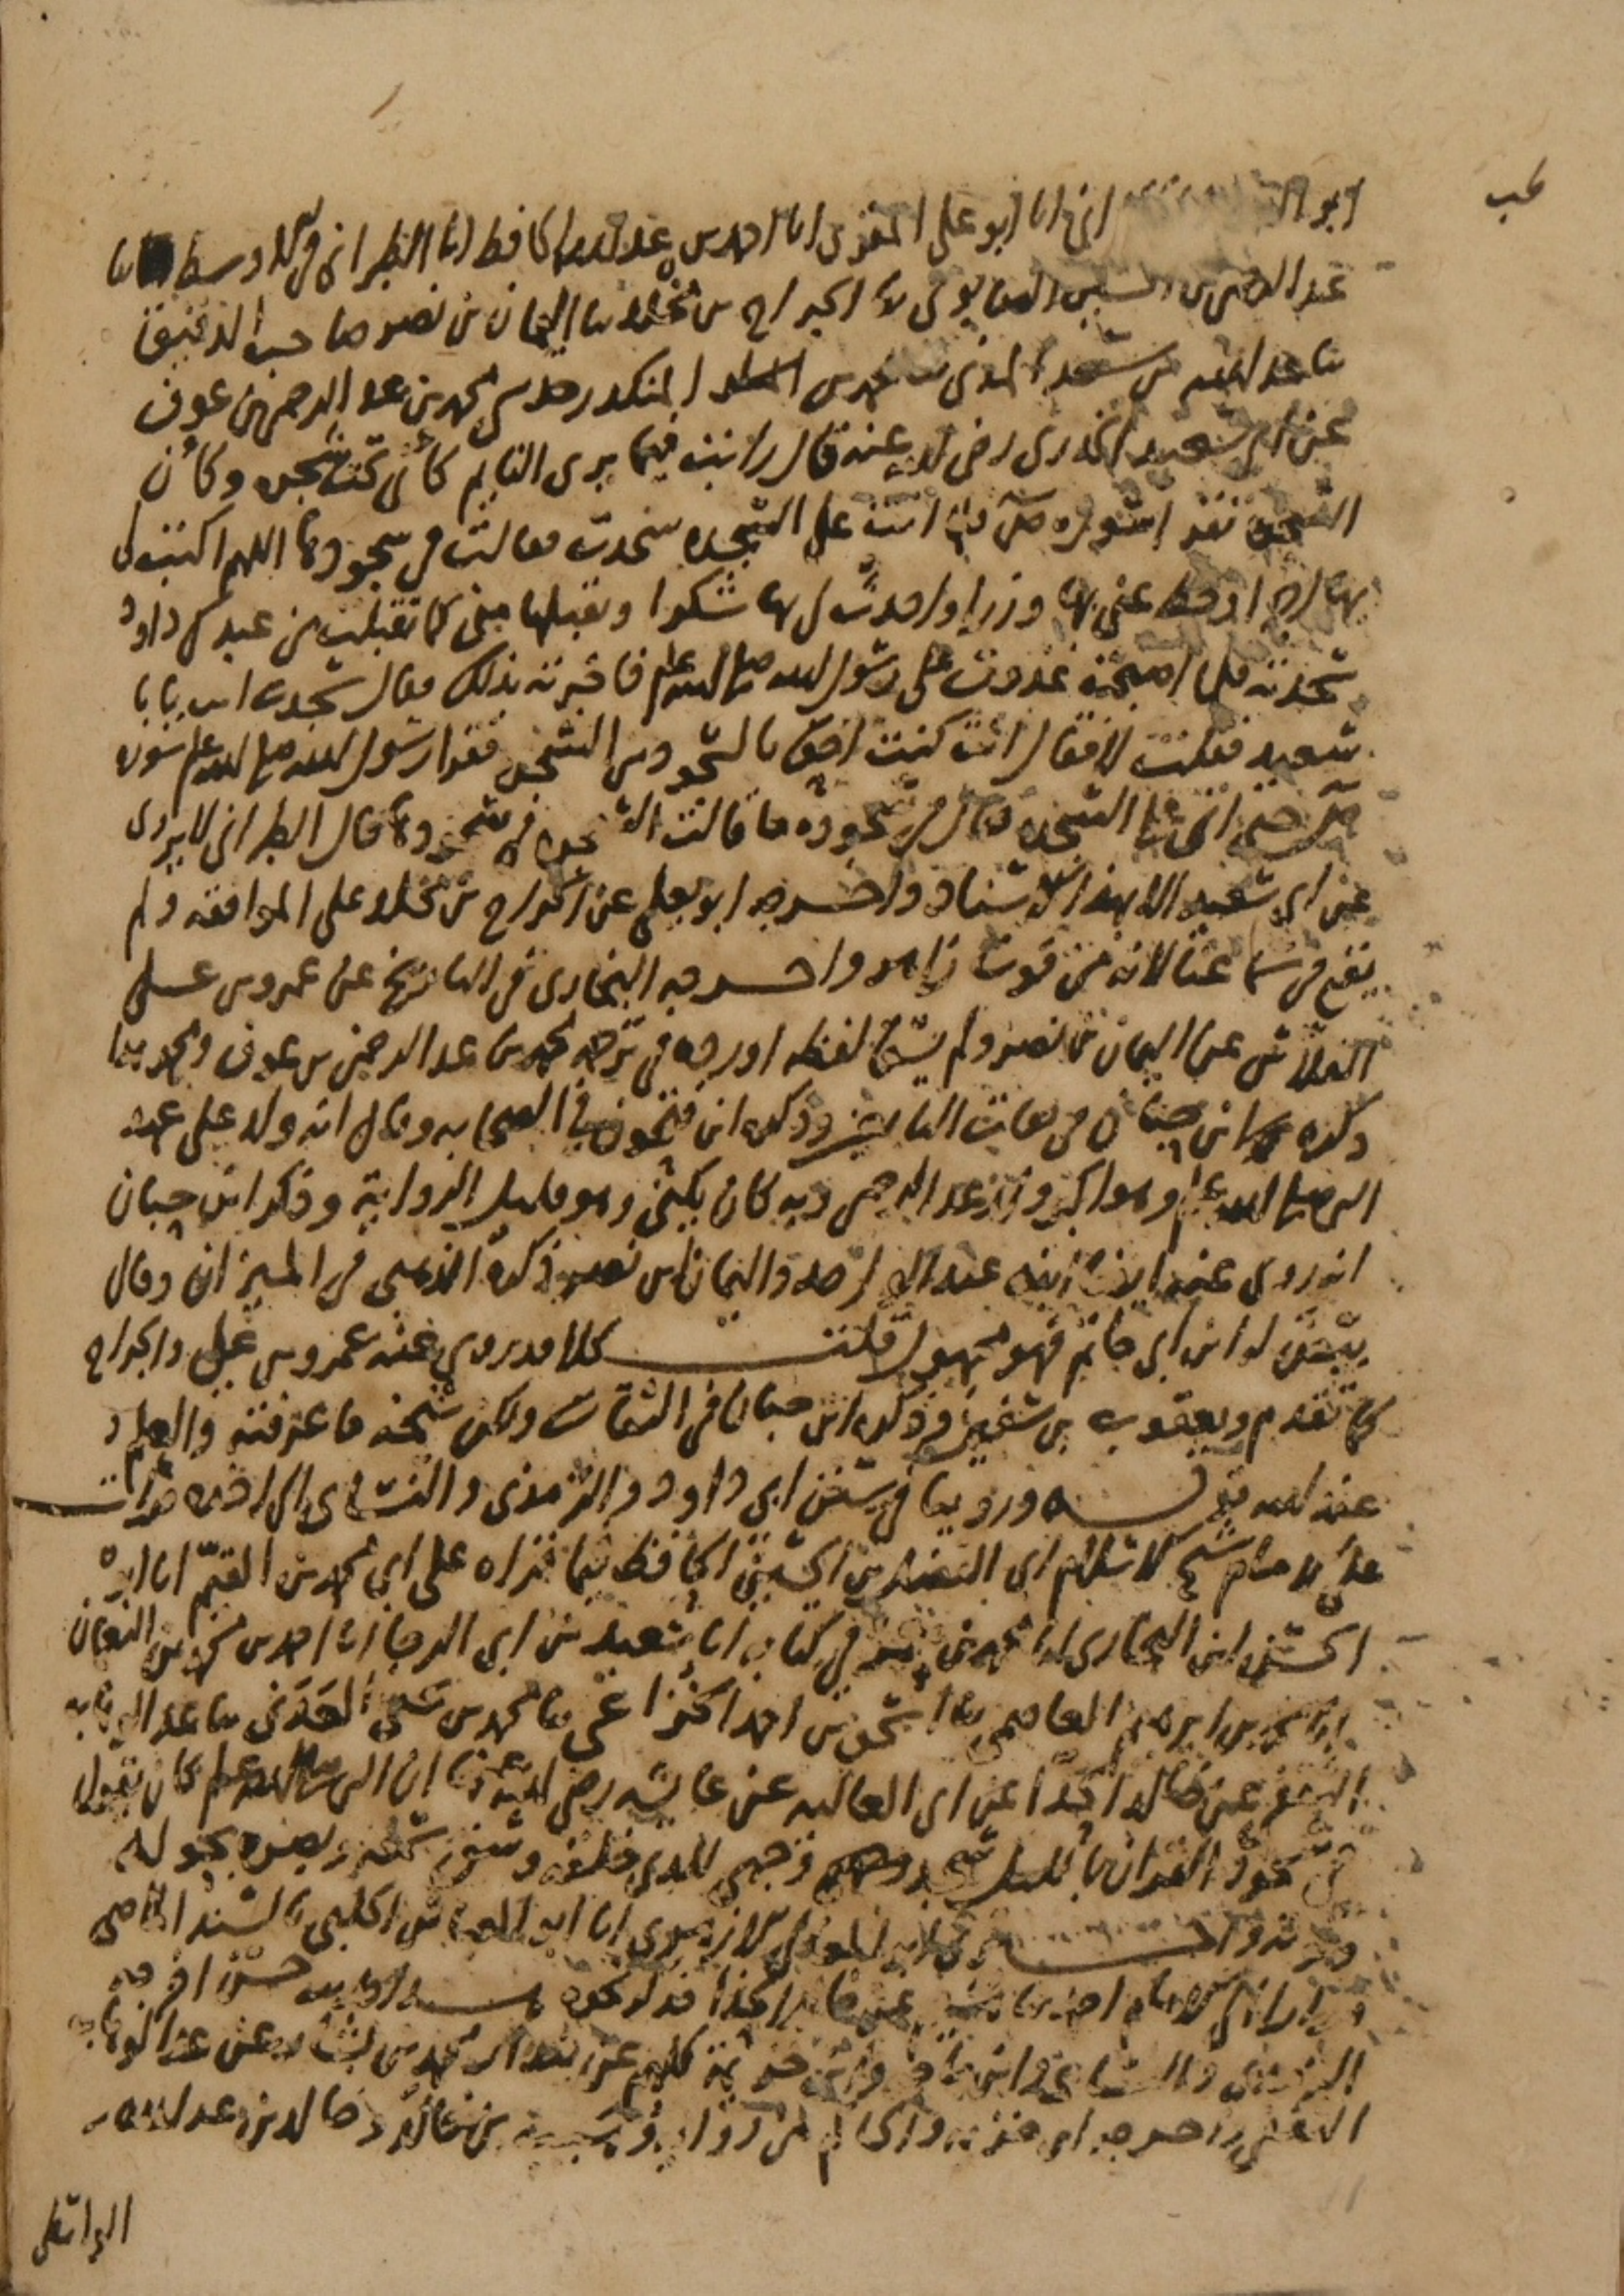 ابو انا ابو علي المقري انا احمد بن عبد الله الحافظ انا الطبراني في الاوسط ثنا
علي بن الجراح بن مخلد ثنا اليمان بن نصر صاحب الدقيق
ثنا عبد الله بن سعد المدني ثنا محمد بن المنكدر حدثني محمد بن عبد الرحمن بن عوف
عن ابي سعيد الخدري رضي الله عنه قال رايت فيما يرى النايم كأني تحت شجرة وكأن
الشجرة تقرأ سورة ص فلما اتت على السجدة سجدت فقالت في سجودها اللهم اكتب لي
بها اجرا وحط عني بها وزرا واحدث لي بها شكرا وتقبلها مني كما تقبلت من عبدك داود
سجدته فلما اصبحت غدوت على رسول الله صلى الله عليه وسلم فاخبرته بذلك فقال سجدت انت يا با
سعيد فقلت لا فقال انت كنت احق بالسجود من الشجرة فقرا رسول الله صلى الله عليه وسلم سورة
ص حتى اتى على السجدة فقال في سجوده ما قالت الشجرة في سجودها قال الطبراني لا يروى
عن ابي سعيد الا بهذا الاسناد واخرجه ابو يعلى عن الجراح بن مخلد على الموافقة ولم
يقع في سماعنا لانه من فوت زاهر واخرجه البخاري في التاريخ عن عمرو بن علي
الفلاس عن اليمان بن نصر ولم يسق لفظه اورده في ترجمة محمد بن عبد الرحمن بن عوف ومحمد هذا
ذكره ابن حبان في ثقات التابعين وذكره ابن فتحون في الصحابة وقال انه ولد على عهد
النبي صلى الله عليه وسلم وهو اكبر ولد عبد الرحمن وبه كان يكنى وهو قليل الرواية وذكر ابن حبان
انه روى عنه ايضا ابنه عبد الواحد واليمان بن نصر ذكره الذهبي في الميزان وقال
بيض له ابن ابي حاتم فهو مجهول قلت كلا قد روى عنه عمرو بن علي والجراح
كما تقدم ويعقوب بن سفين وذكره ابن حبان في الثقات ولكن شيخه ما عرفته والعلم
عند الله قوله وروينا في سنن ابي داود والترمذي والنسائي الى اخره قرات
على الامام شيخ الاسلام ابي الفضل بن الحسين الحافظ فيما قراه على ابي محمد بن القيم انا ابو
الحسن ابن البخاري انا محمد بن في كتابه انا سعيد بن ابي الرجا انا احمد بن محمد بن النعمان
انا محمد بن ابرهيم العاصمي ثنا اسحق بن احمد الخزاعي ثنا محمد بن يحيى العدني ثنا عبد الوهاب
الثقفي عن خالد الحذا عن ابي العالية عن عايشة رضي الله عنها ان النبي صلى الله عليه وسلم كان يقول
في سجود القران بالليل سجد وجهي للذي خلقه وشق سمعه وبصره بحوله
وقوته واخبرني انا ابو العباس الحلبي بالسند الماضي
الى الامام احمد ثنا عن خالد الحذا فذكر نحوه هذا حديث حسن اخرجه
الترمذي والنسائي وابن خزيمة كلهم عن بندار محمد بن بشار عن عبد الوهاب
الثقفي واخرجه ابن خزيمة والحاكم من رواية وهيب بن خالد وخالد بن عبد الله
الواسطي